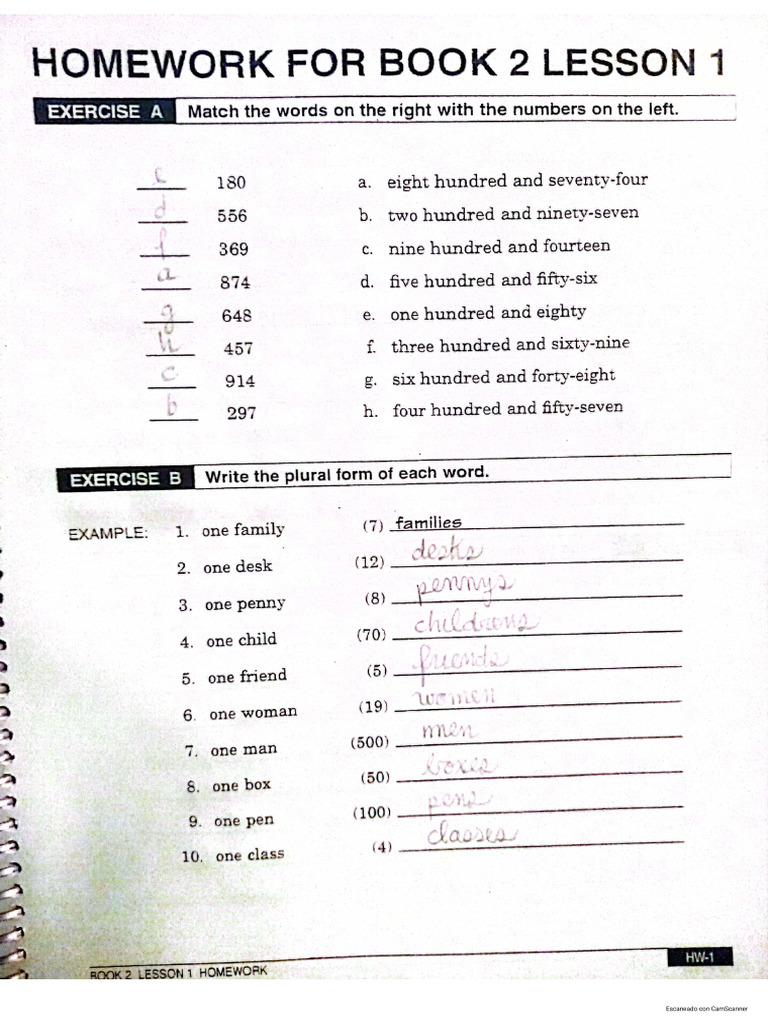 HOMEWORK FOR BOOK 2 LESSON 1
EXERCISE A Match the words on the right with the numbers on the left.
e 180 a. eight hundred and seventy-four
d 556 b. two hundred and ninety-seven
f 369 c. nine hundred and fourteen
a 874 d. five hundred and fifty-six
g 648 e. one hundred and eighty
h 457 f. three hundred and sixty-nine
c 914 g. six hundred and forty-eight
b 297 h. four hundred and fifty-seven
EXERCISE B Write the plural form of each word.
EXAMPLE: 1. one family (7) families
2. one desk (12) desks
3. one penny (8) pennys
4. one child (70) childrens
5. one friend (5) friends
6. one woman (19) women
7. one man (500) men
8. one box (50) boxes
9. one pen (100) pens
10. one class (4) classes
BOOK 2 LESSON 1 HOMEWORK HW-1
Escaneado con CamScanner